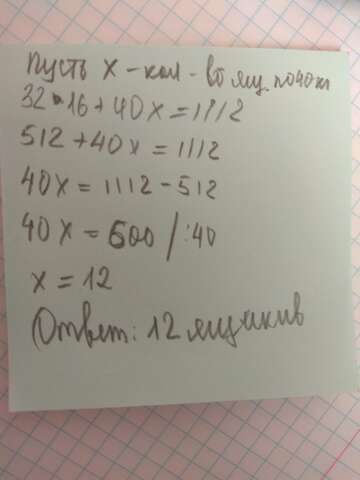 Пусть x - кол-во ящ. по 40 кг
32 · 16 + 40x = 1112
512 + 40x = 1112
40x = 1112 - 512
40x = 600 / :40
x = 12
Ответ: 12 ящиков